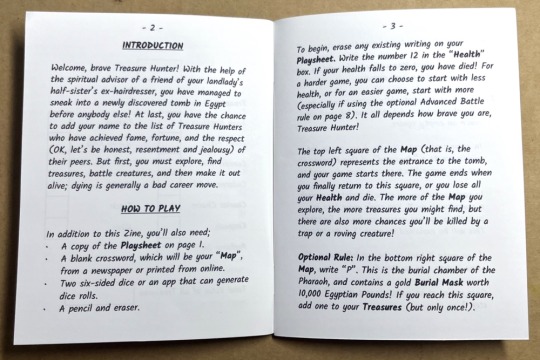 - 2 -
INTRODUCTION
Welcome, brave Treasure Hunter! With the help of
the spiritual advisor of a friend of your landlady's
half-sister's ex-hairdresser, you have managed to
sneak into a newly discovered tomb in Egypt
before anybody else! At last, you have the chance
to add your name to the list of Treasure Hunters
who have achieved fame, fortune, and the respect
(OK, let's be honest, resentment and jealousy) of
their peers. But first, you must explore, find
treasures, battle creatures, and then make it out
alive; dying is generally a bad career move.
HOW TO PLAY
In addition to this Zine, you'll also need;
· A copy of the Playsheet on page 1.
· A blank crossword, which will be your "Map",
from a newspaper or printed from online.
· Two six-sided dice or an app that can generate
dice rolls.
· A pencil and eraser.
- 3 -
To begin, erase any existing writing on your
Playsheet. Write the number 12 in the "Health"
box. If your health falls to zero, you have died! For
a harder game, you can choose to start with less
health, or for an easier game, start with more
(especially if using the optional Advanced Battle
rule on page 8). It all depends how brave you are,
Treasure Hunter!
The top left square of the Map (that is, the
crossword) represents the entrance to the tomb,
and your game starts there. The game ends when
you finally return to this square, or you lose all
your Health and die. The more of the Map you
explore, the more treasures you might find, but
there are also more chances you'll be killed by a
trap or a roving creature!
Optional Rule: In the bottom right square of the
Map, write "P". This is the burial chamber of the
Pharaoh, and contains a gold Burial Mask worth
10,000 Egyptian Pounds! If you reach this square,
add one to your Treasures (but only once!).